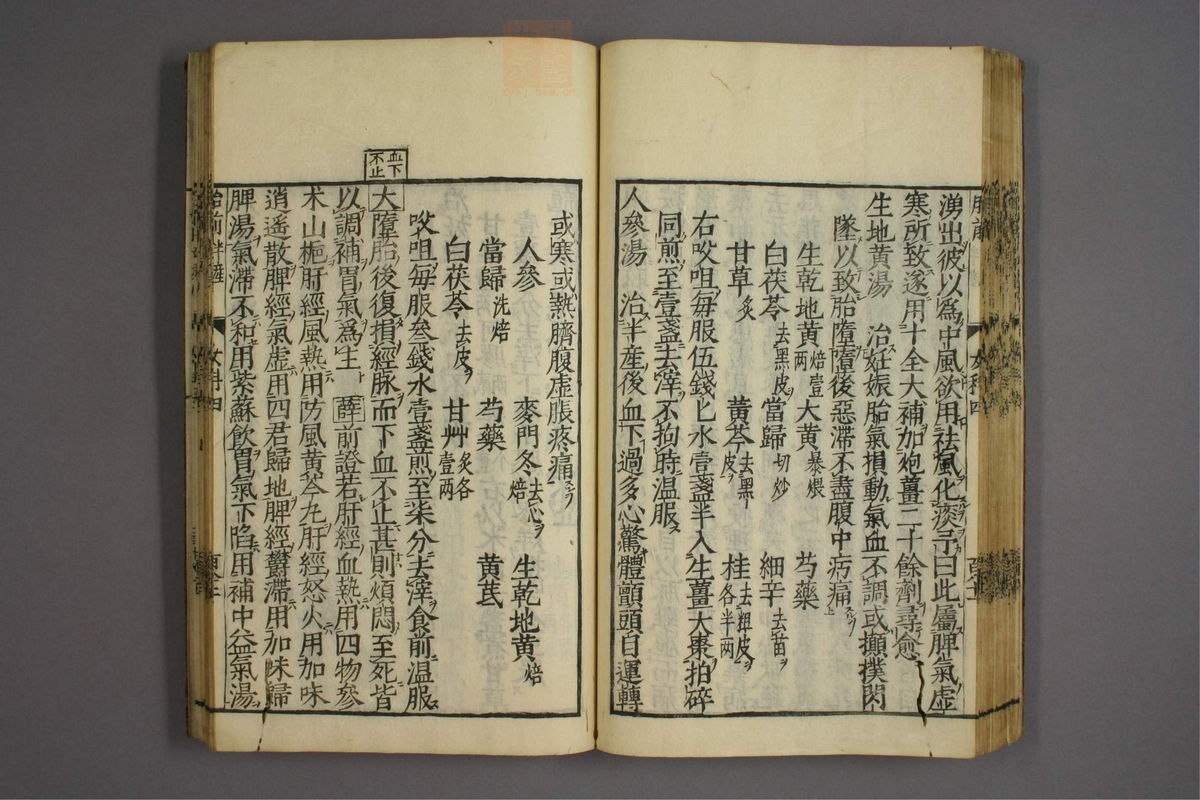 湧出彼以爲中風欲用祛風化痰予曰此屬脾氣虛
寒所致遂用十全大補加炮薑二十餘劑尋愈
生地黃湯　治妊娠胎氣損動氣血不調或攧撲閃
墜以致胎墮墮後惡滯不盡腹中㽲痛
生乾地黃焙壹兩　大黃暴煨　芍藥
白茯苓去黑皮　當歸切炒　細辛去苗
甘草炙　黃芩去黑皮　桂去粗皮各半兩
右㕮咀每服伍錢匕水壹盞半入生薑大棗拍碎
同煎至壹盞去滓不拘時溫服
人參湯　治半產後血下過多心驚體顫頭目運轉
或寒或熱臍腹虛脹疼痛
人參　麥門冬去心焙　生乾地黃焙
當歸洗焙　芍藥　黃芪
白茯苓去皮　甘艸炙各壹兩
㕮咀每服叁錢水壹盞煎至柒分去滓食前溫服
血下不止
大墮胎後復損經脉而下血不止甚則煩悶至死皆
以調補胃氣爲生　薛前證若肝經血熱用四物參
朮山梔肝經風熱用防風黃芩丸肝經怒火用加味
逍遙散脾經氣虛用四君歸地脾經鬱滯用加味歸
脾湯氣滯不和用紫蘇飲胃氣下陷用補中益氣湯
女科四